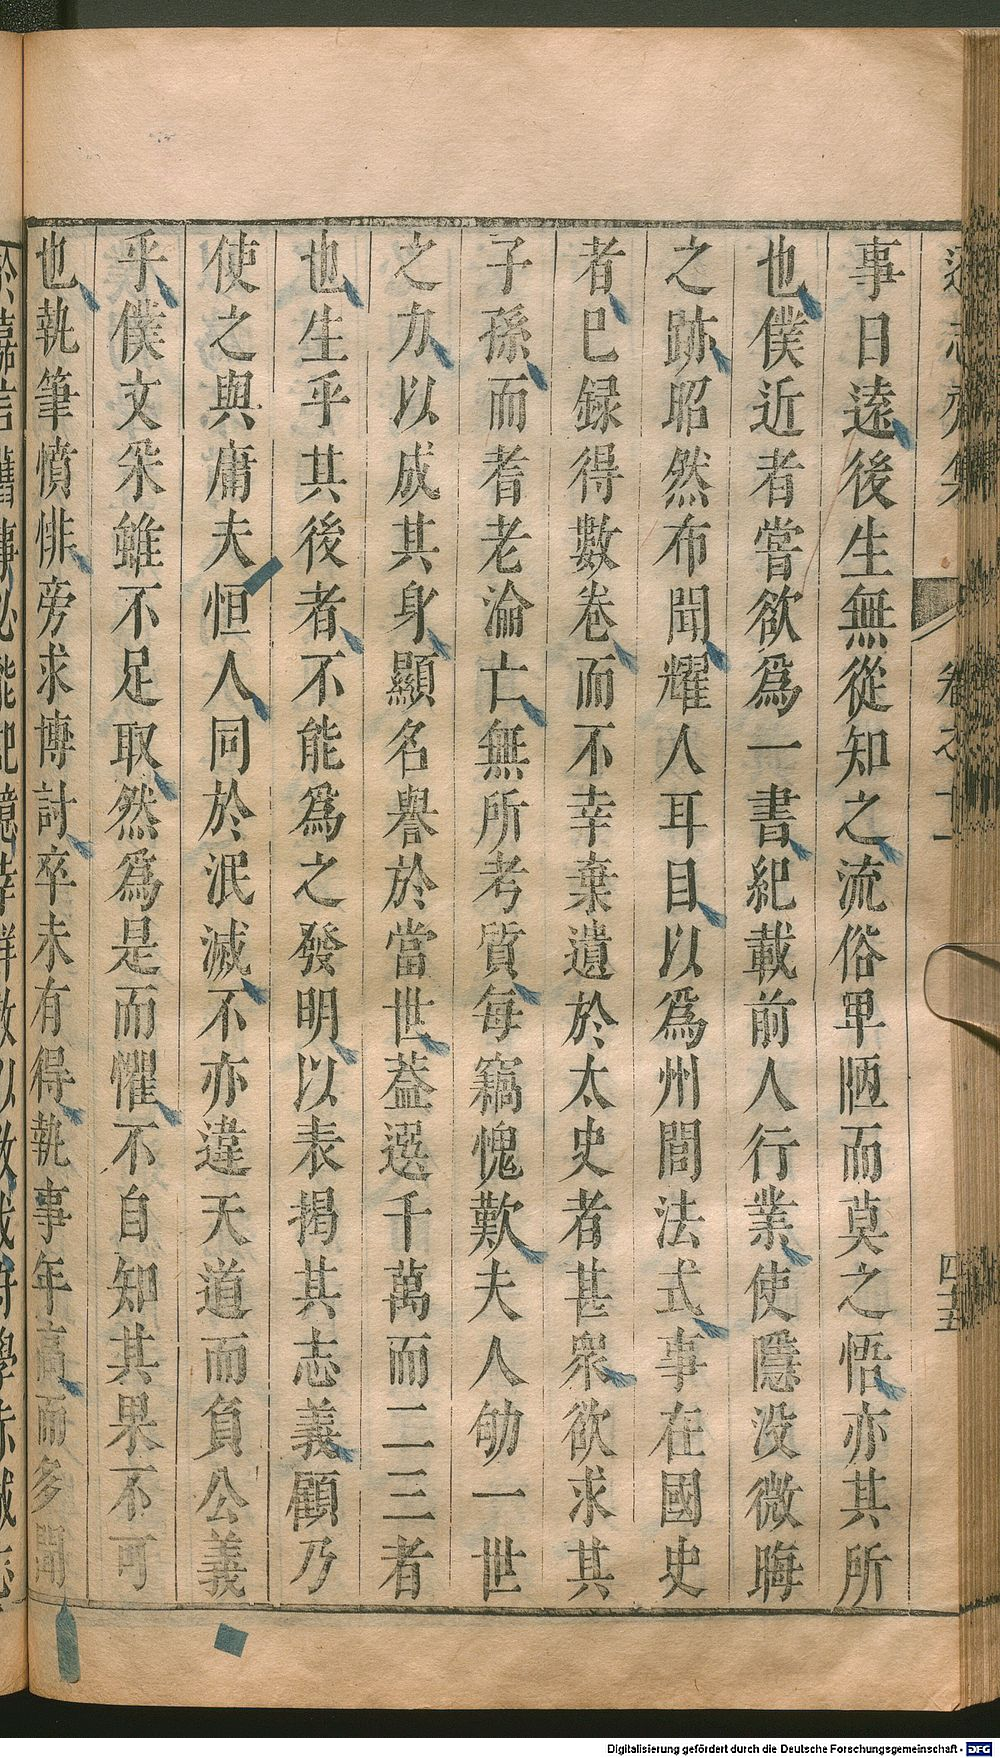 卷之十一
四十五
事日遠後生無從知之流俗卑陋而莫之悟亦其所
也僕近者嘗欲爲一書紀載前人行業使隱没微晦
之跡昭然布聞耀人耳目以爲州閭法式事在國史
者已録得數卷而不幸棄遺於太史者甚衆欲求其
子孫而耆老淪亡無所考質每竊愧歎夫人劬一世
之力以成其身顯名譽於當世葢選千萬而二三者
也生乎其後者不能爲之發明以表揭其志義顧乃
使之與庸夫恒人同於泯滅不亦違天道而負公義
乎僕文采雖不足取然爲是而懼不自知其果不可
也執筆憤悱旁求博討卒未有得執事年高而多聞
Digitalisierung gefördert durch die Deutsche Forschungsgemeinschaft - DFG